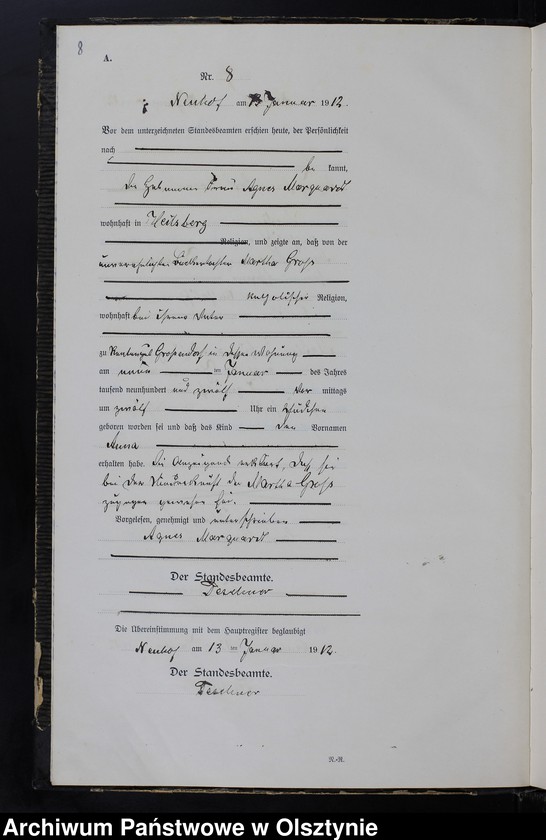 8
A.
Nr. 8
Neuhof am 13 Januar 1912.
Vor dem unterzeichneten Standesbeamten erschien heute, der Persönlichkeit
nach
be kannt,
die Hebamme Frau Agnes Marquardt
wohnhaft in Heilsberg
Religion, und zeigte an, daß von der
unverehelichten Martha Groß
katholischer Religion,
wohnhaft bei ihrem Vater
zu Großendorf in dessen Wohnung
am neun ten Januar des Jahres
tausend neunhundert und zwölf Vor mittags
um zwölf Uhr ein Mädchen
geboren worden sei und daß das Kind den Vornamen
Anna
erhalten habe. Die Anzeigende erklärt, daß sie
bei der Niederkunft der Martha Groß
zugegen gewesen sei.
Vorgelesen, genehmigt und unterschrieben
Agnes Marquardt
Der Standesbeamte.
Die Übereinstimmung mit dem Hauptregister beglaubigt
Neuhof am 13 ten Januar 1912.
Der Standesbeamte.
N.-R.
Archiwum Państwowe w Olsztynie